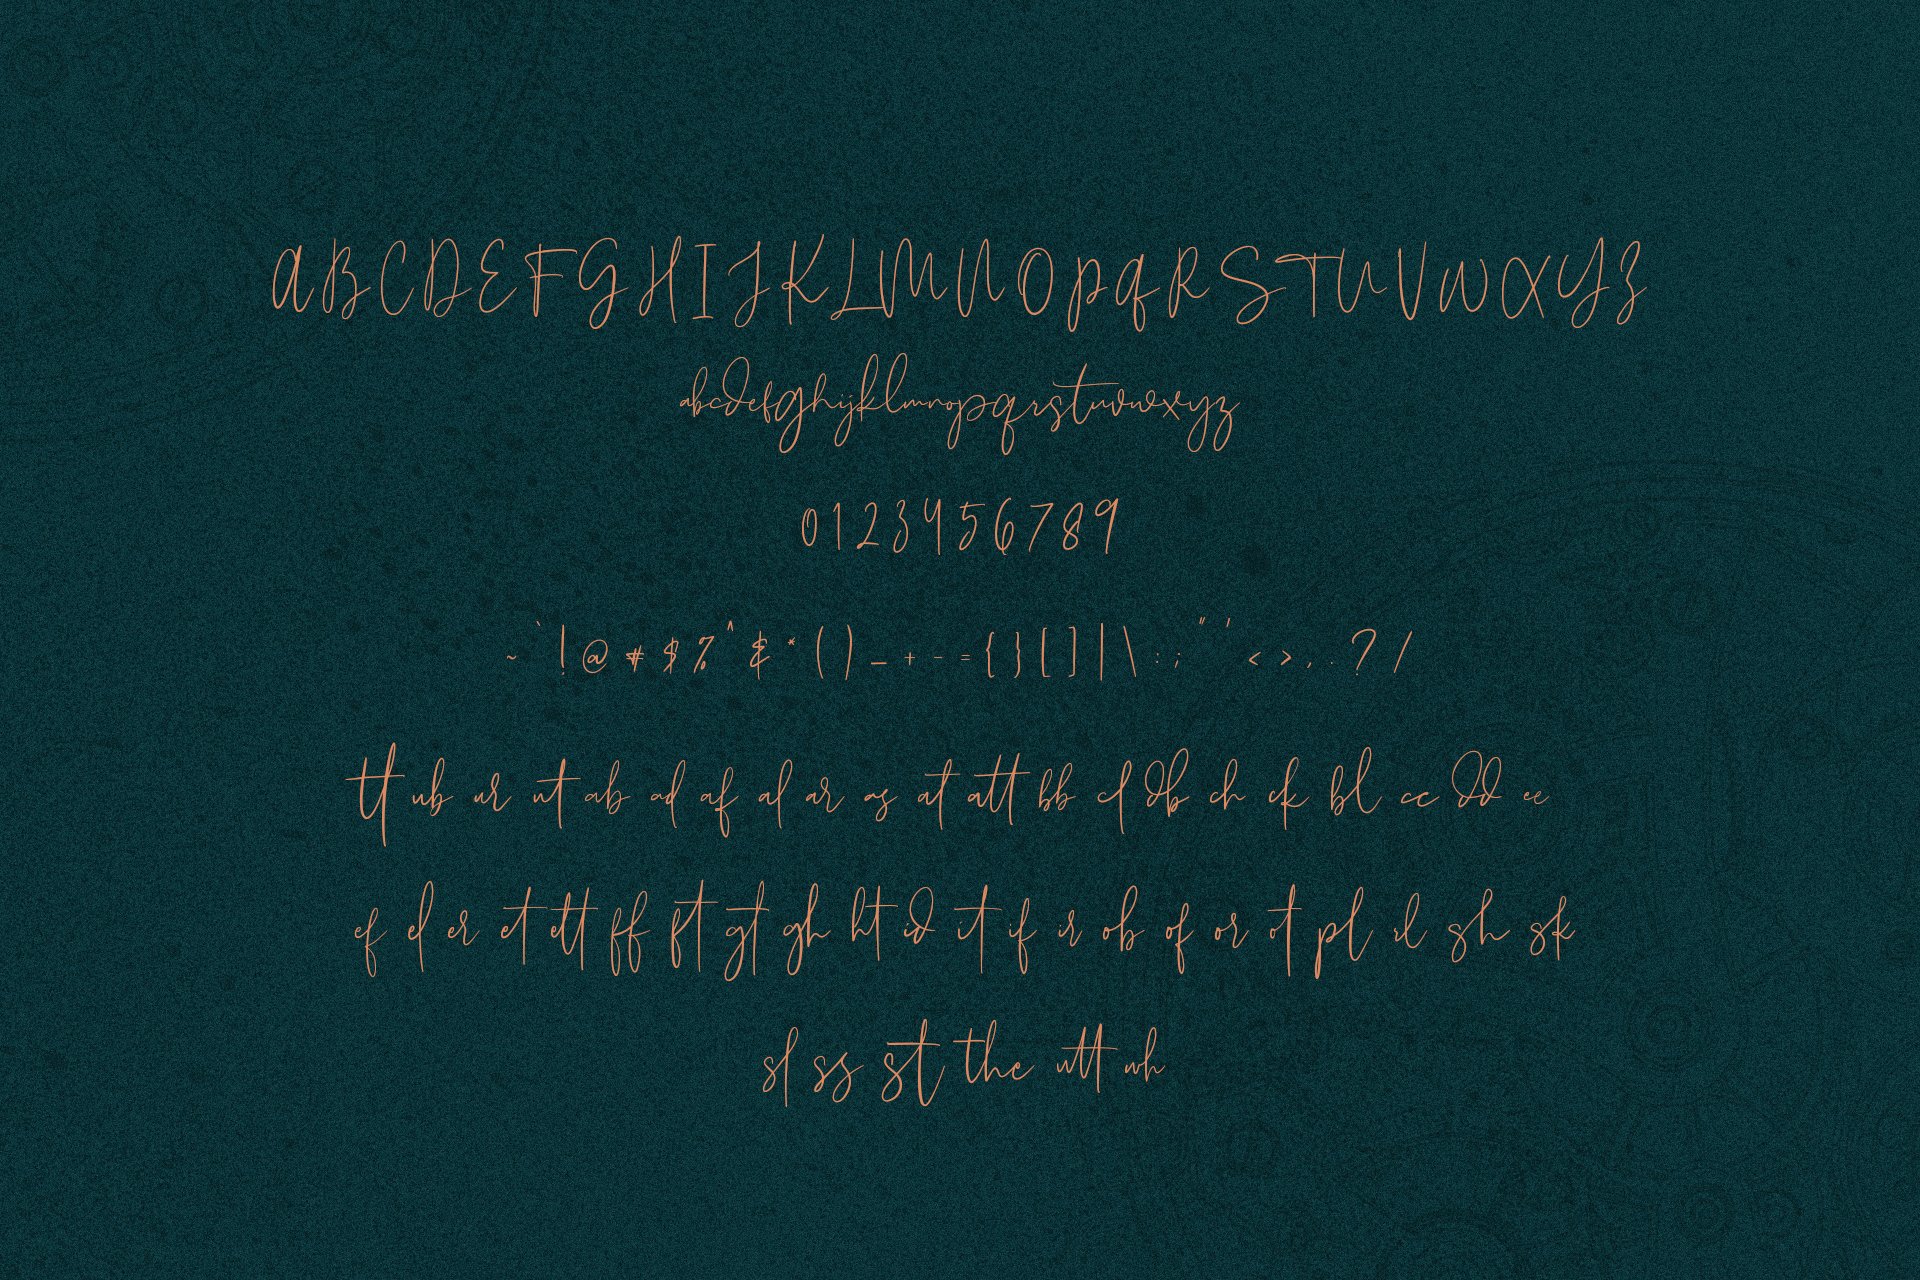 A B C D E F G H I J K L M N O P Q R S T U V W X Y Z
abcdefghijklmnopqrstuvwxyz
0 1 2 3 4 5 6 7 8 9
~ ` ! @ # $ % ^ & * ( ) _ + - = { } [ ] | \ : ; " ' < > , . ? /
tt ub ur ut ab ad af al ar as at att bb cl db ch ck bl cc dd ee
ef el er et ett ff ft gt gh ht id it if ir ob of or ot pl rl sh sk
sl ss st the utt wh